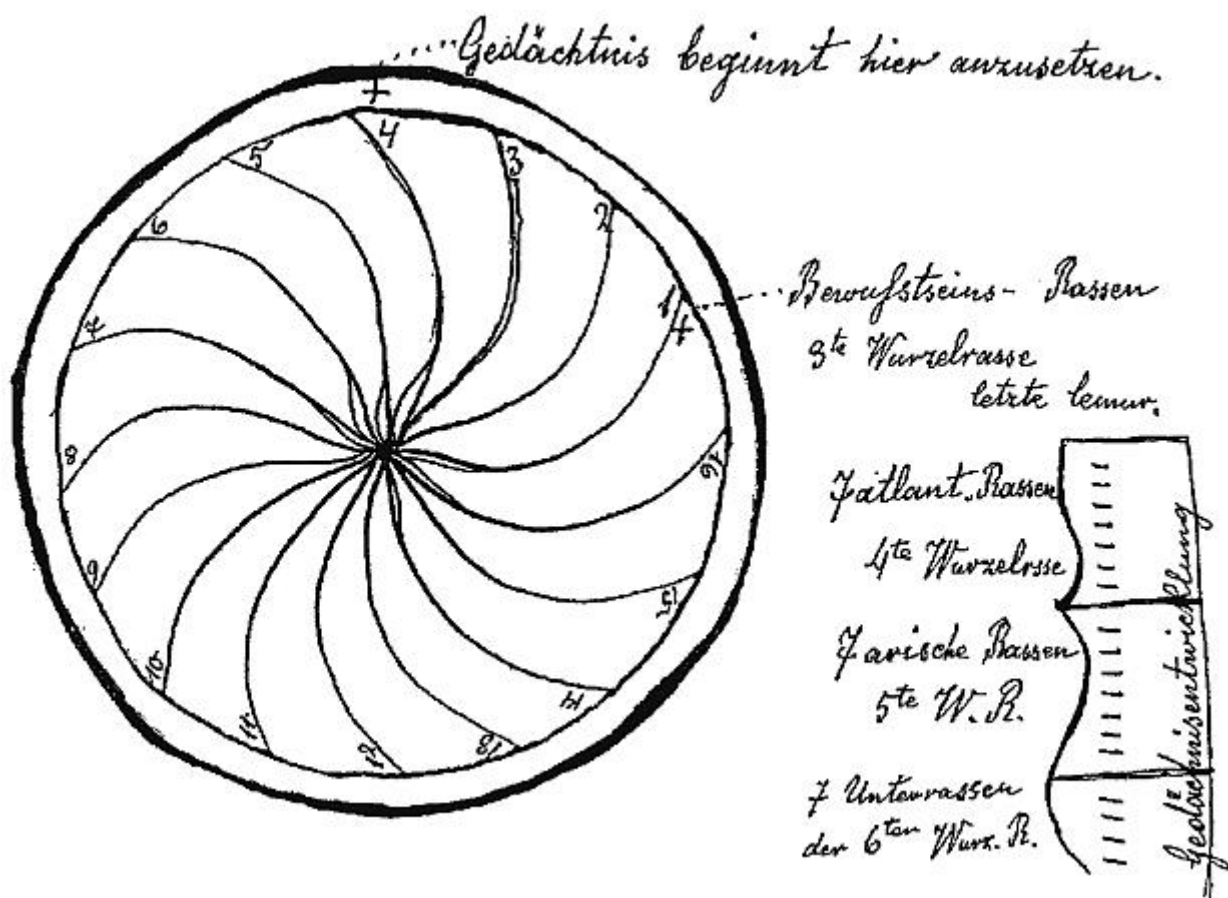 Gedächtnis beginnt hier anzusetzen.
4
3
5
2
6
1
7
8
16
9
15
10
14
11
12
13
Bewußtseins- Rassen
3te Wurzelrasse
letzte lemur.
7 atlant. Rassen
4te Wurzelrsse
7 arische Rassen
5te W. R.
7 Unterrassen
der 6ten Wurz. R.
Gedächnisentwicklung